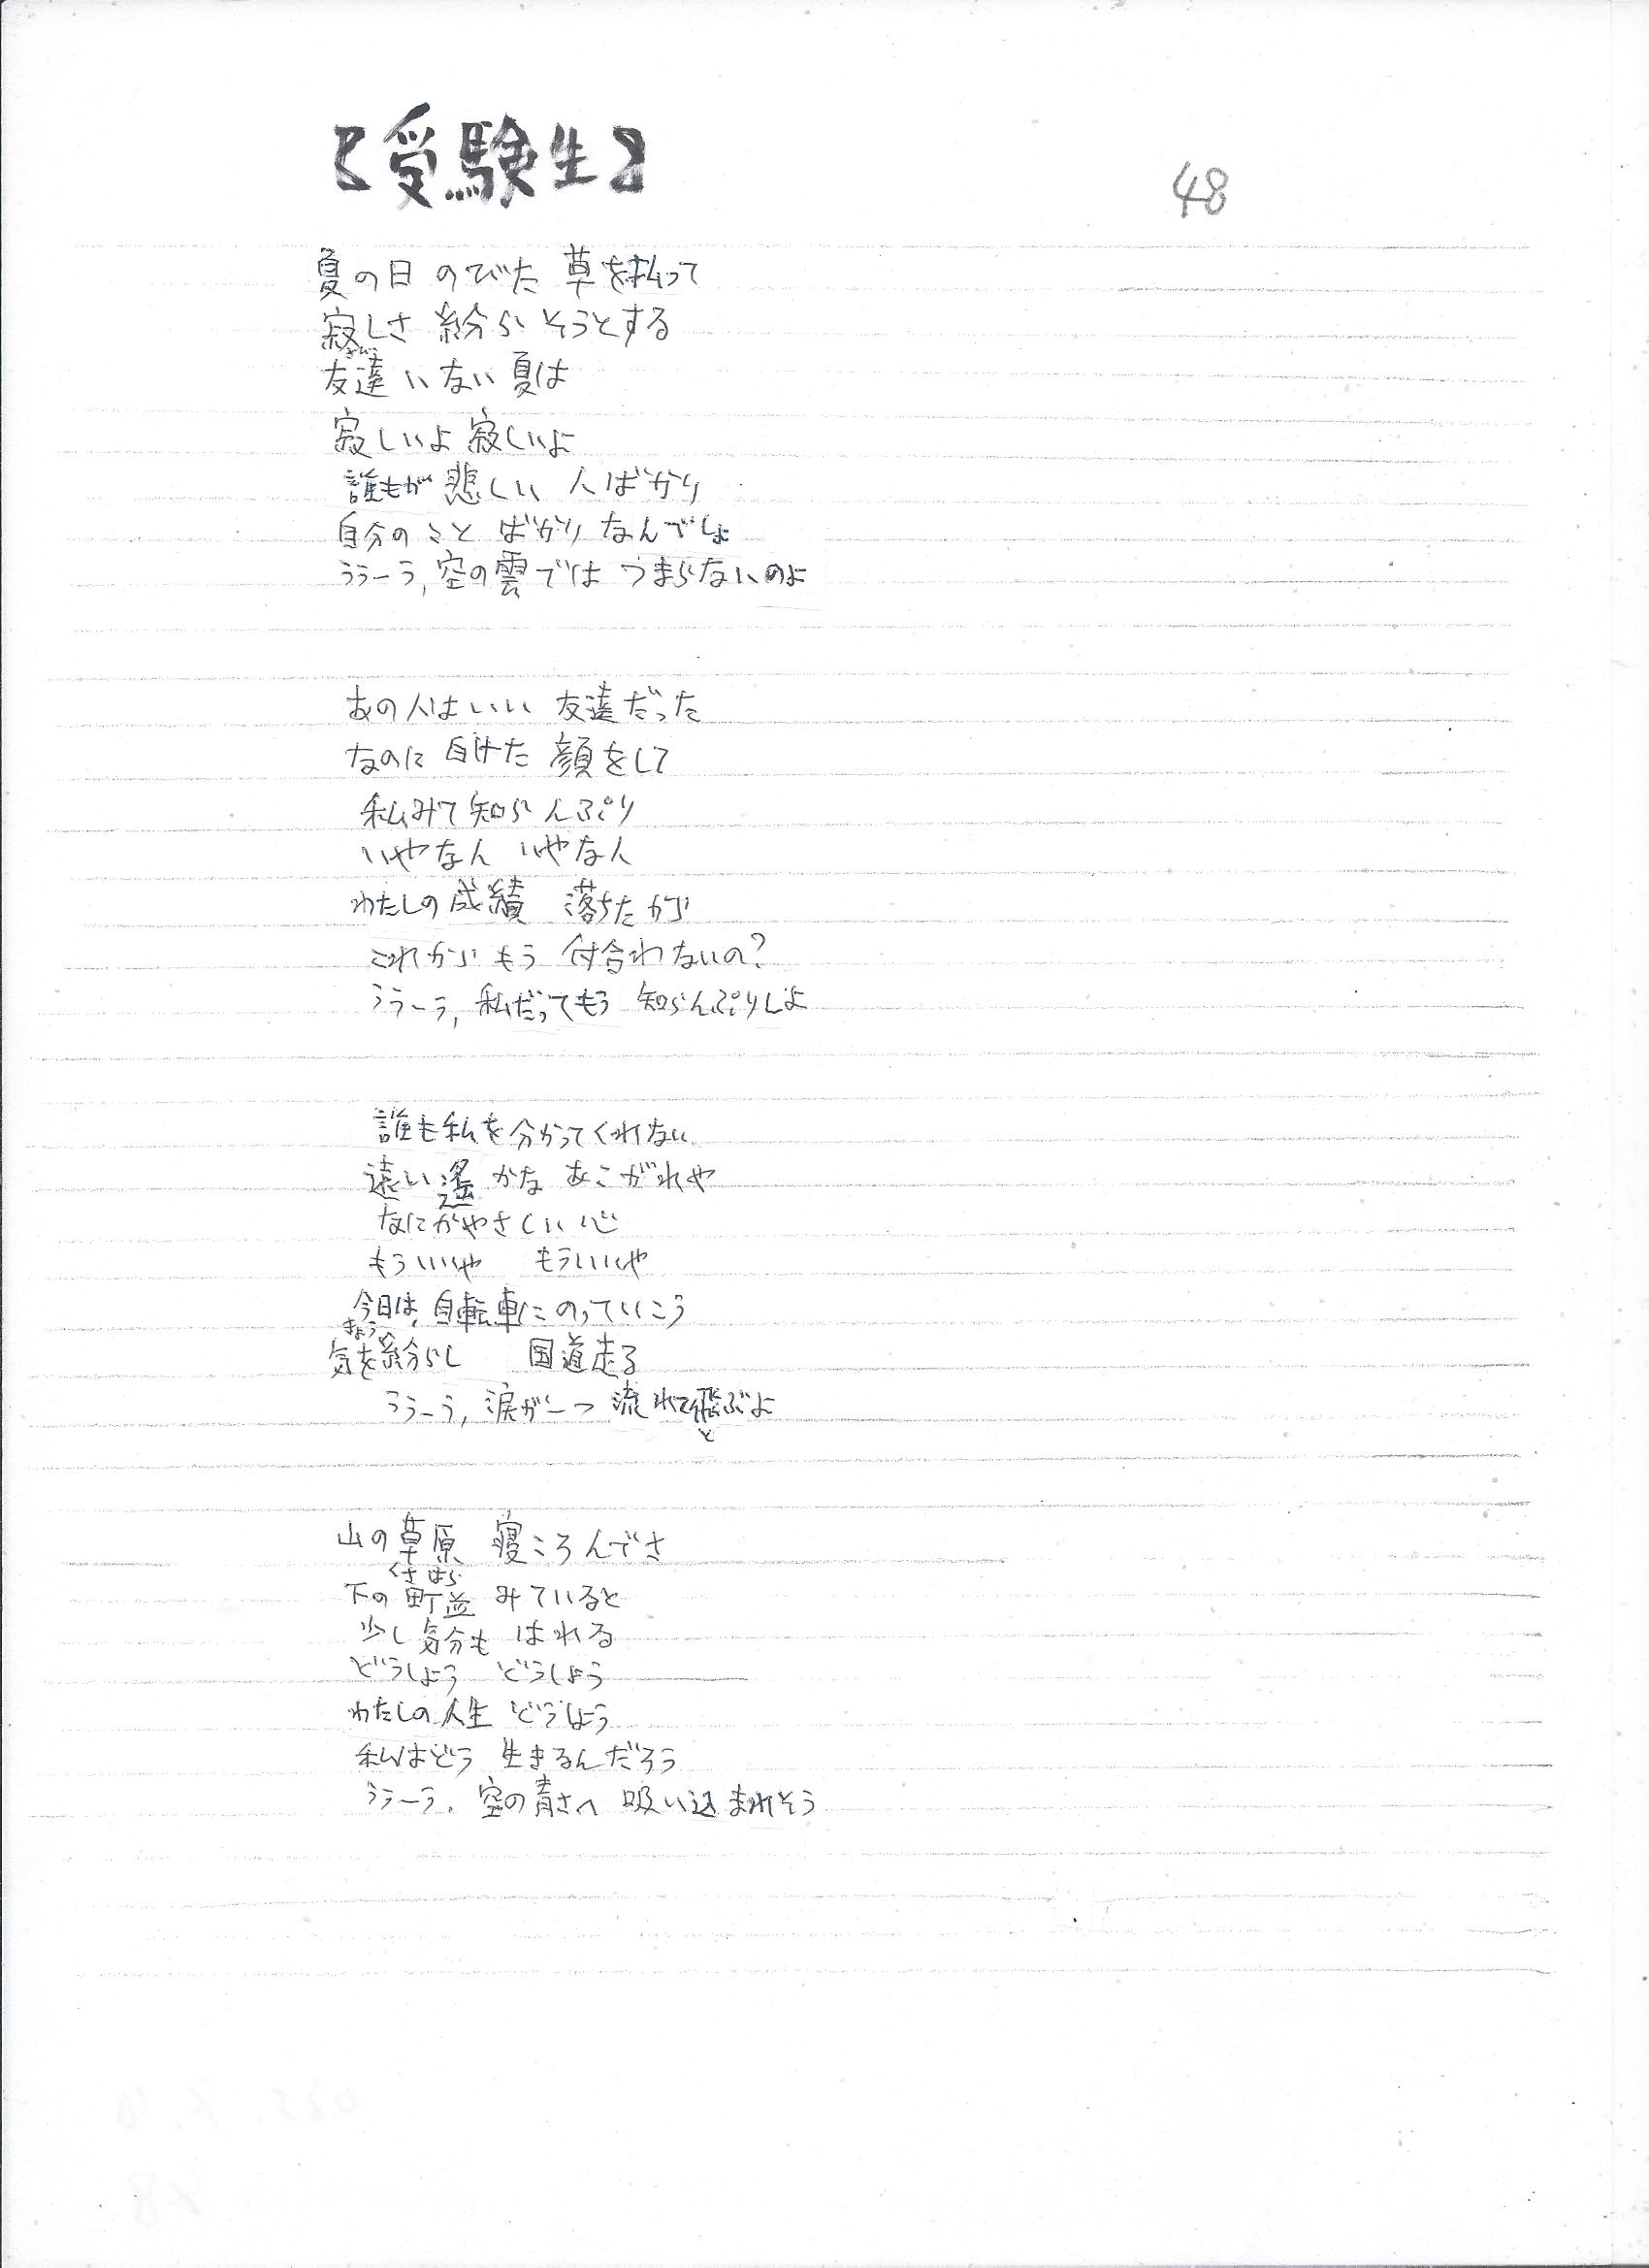 【受験生】
48
夏の日 のびた 草を払って
寂しさ 紛らそうとする
さび
友達いない 夏は
寂しいよ 寂しいよ
誰もが 悲しい 人ばかり
自分のこと ばかり なんでしょ
ううーう, 空の雲では つまらないのよ
あの人はいい 友達だった
なのに 白けた 顔をして
私みて知らんぷり
いやなん いやな人
わたしの成績 落ちたから
これから もう 付合わないの?
ううーう, 私だってもう 知らんぷりしよ
誰も私を分かってくれない
遠い遙かな あこがれや
なにかやさしい 心
もういいや もういいや
今日は 自転車にのっていこう
きょう
気を紛らし 国道走る
ううーう, 涙が一つ 流れて飛ぶよ
と
山の草原 寝ころんでさ
くさはら
下の町並 みていると
少し気分も はれる
どうしよう どうしよう
わたしの人生 どうしよう
私はどう 生きるんだろう
ううーう, 空の青さへ 吸い込まれそう